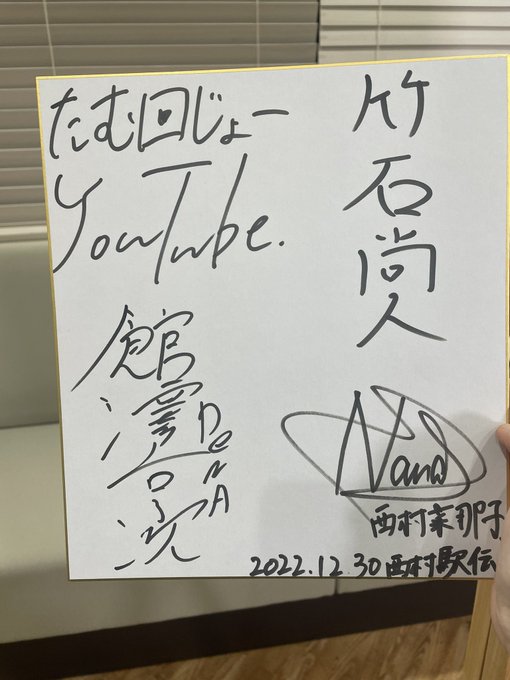 たむ回じょー
YouTube.
竹石尚人
館澤亨次
DeNA
Nana
西村菜那子
2022.12.30 西村駅伝